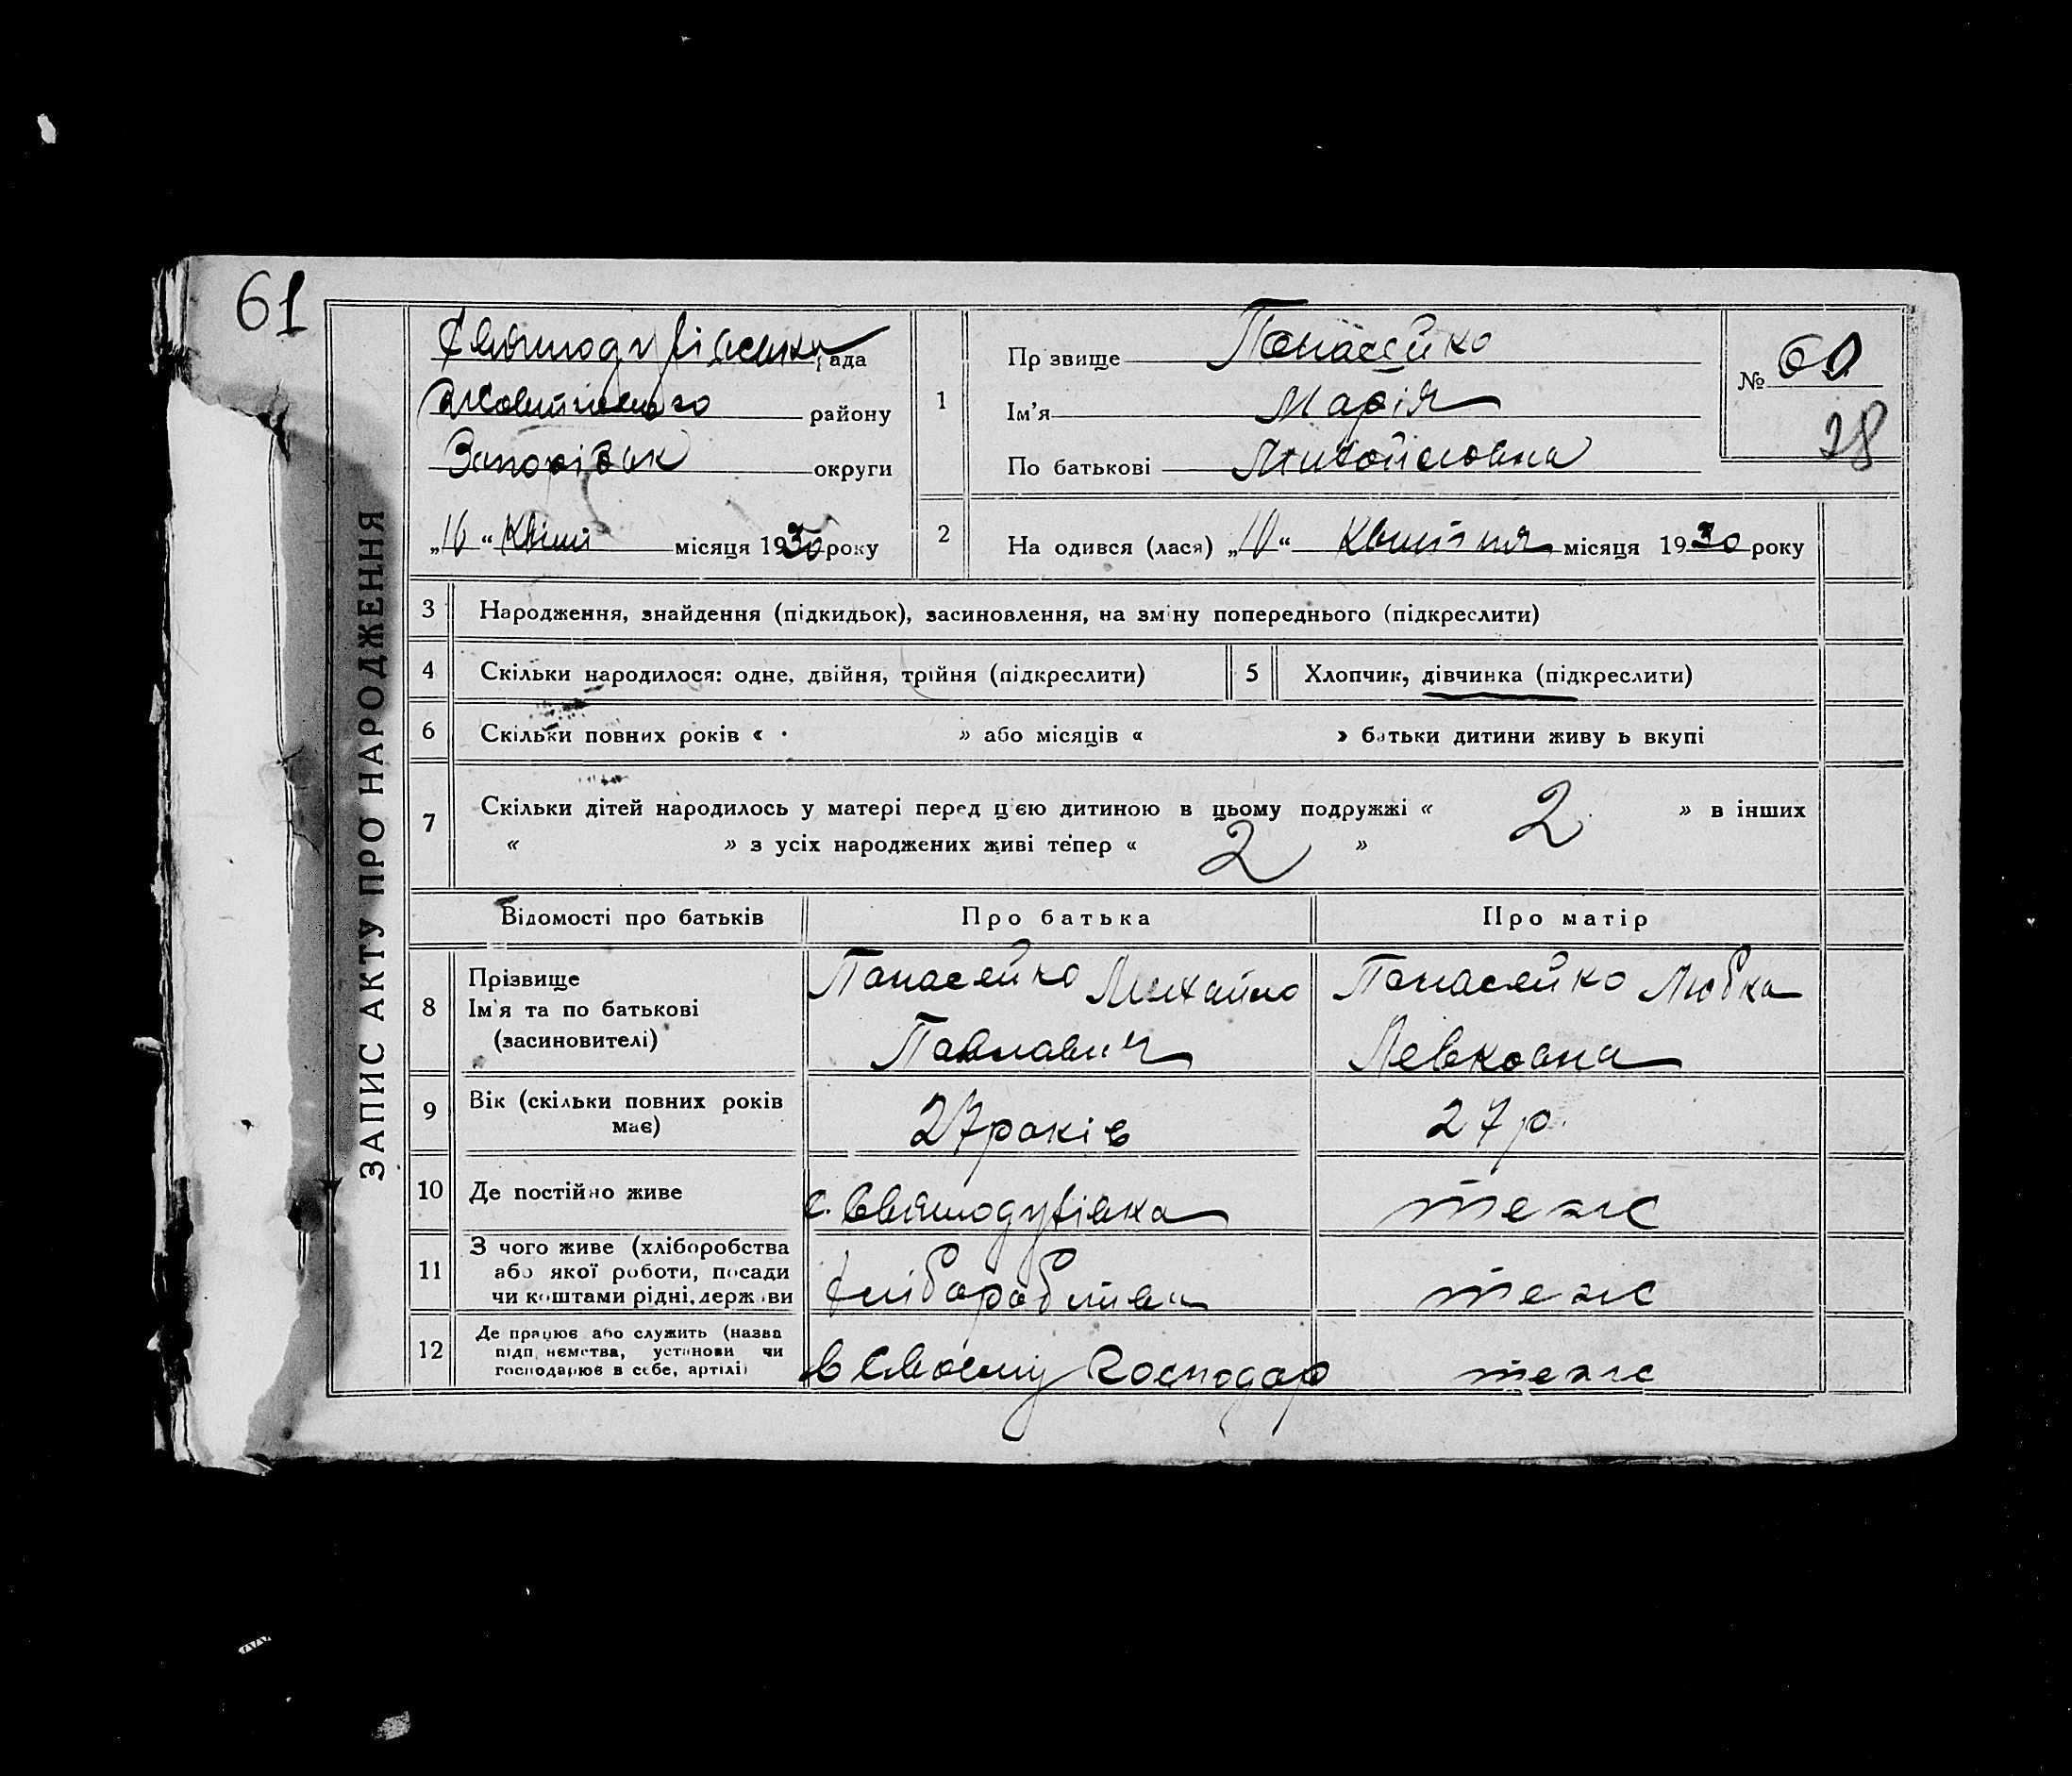 61
ЗАПИС АКТУ ПРО НАРОДЖЕННЯ
Святодухівська рада
району
Запорізьк округи
„10“ Квіт місяця 1930 року
1
Пр звище Панасейко
Ім'я Марія
По батькові Михайловна
№ 60
28
2
На одився (лася) „10“ Квитня місяця 1930 року
3 Народження, знайдення (підкидьок), засиновлення, на зм ну попереднього (підкреслити)
4 Скільки народилося: одне, двійня, трійня (підкреслити)
5 Хлопчик, дівчинка (підкреслити)
6 Скільки повних років « » або місяців « » батьки дитини живу ь вкупі
7 Скільки дітей народилось у матері перед цією дитиною в цьому подружжі « 2 » в інших
« » з усіх народжених живі тепер « 2 »
Відомості про батьків Про батька Про матір
8 Прізвище
Ім'я та по батькові
(засиновителі)
Панасейко Михайло
Павлавич
Панасейко Любка
Левковна
9 Вік (скільки повних років
має)
27 років
27 р.
10 Де постійно живе
с. Святодухівка
теж
11 З чого живе (хліборобства
або якої роботи, посади
чи коштами рідні, держ ви
теж
12 Де працює або служить (назва
підп ńємства, установи чи
господарює в себе, артілі)
в Своєму господар
теж